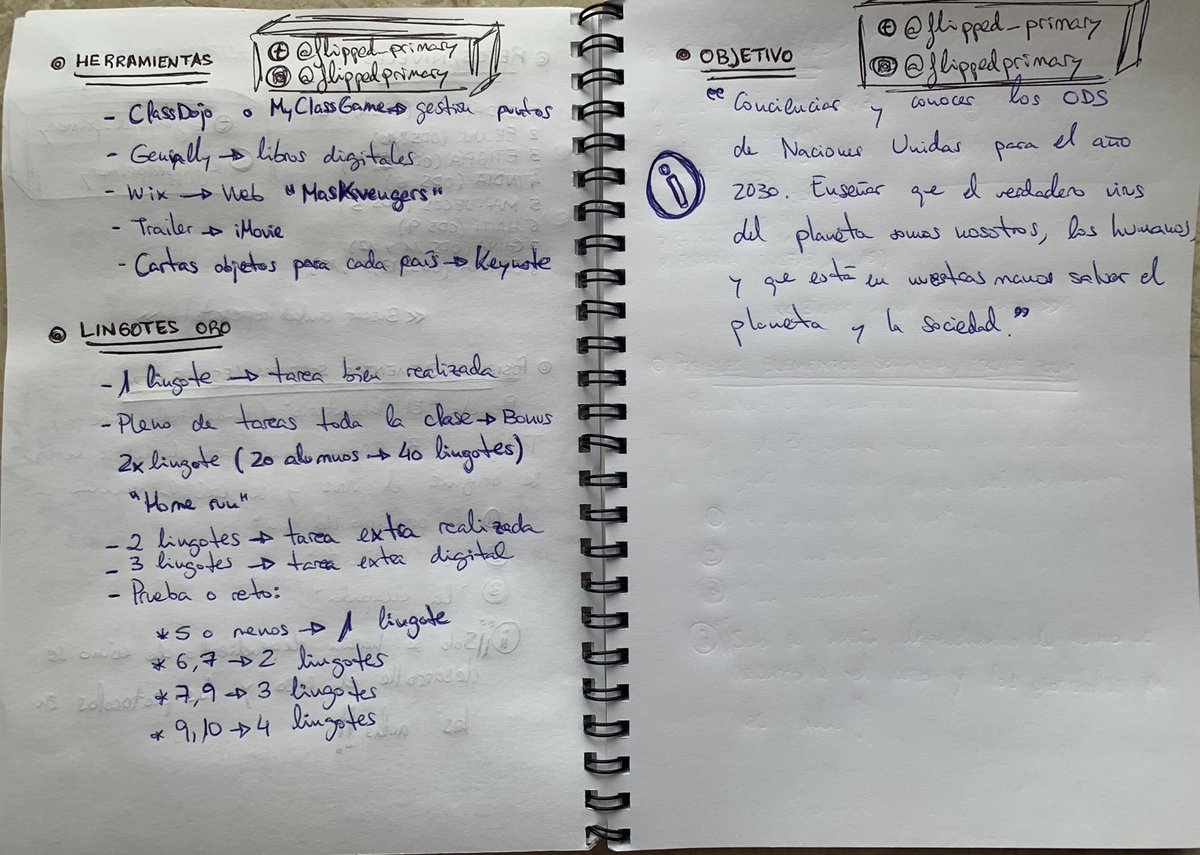 HERRAMIENTAS
@flipped_primary
@flippedprimary
- ClassDojo o MyClassGame → gestión puntos
- Genially → libros digitales
- Wix → Web "Maskvengers"
- Trailer → iMovie
- Cartas objetos para cada país → Keynote
LINGOTES ORO
- 1 lingote → tarea bien realizada
- Pleno de tareas toda la clase → Bonus
2x lingote (20 alumnos → 40 lingotes)
"Home run"
- 2 lingotes → tarea extra realizada
- 3 lingotes → tarea extra digital
- Prueba o reto:
* 5 o menos → 1 lingote
* 6,7 → 2 lingotes
* 7,9 → 3 lingotes
* 9,10 → 4 lingotes
OBJETIVO
@flipped_primary
@flippedprimary
"Concienciar y conocer los ODS
de Naciones Unidas para el año
2030. Enseñar que el verdadero virus
del planeta somos nosotros, los humanos,
y que está en nuestras manos salvar el
planeta y la sociedad."